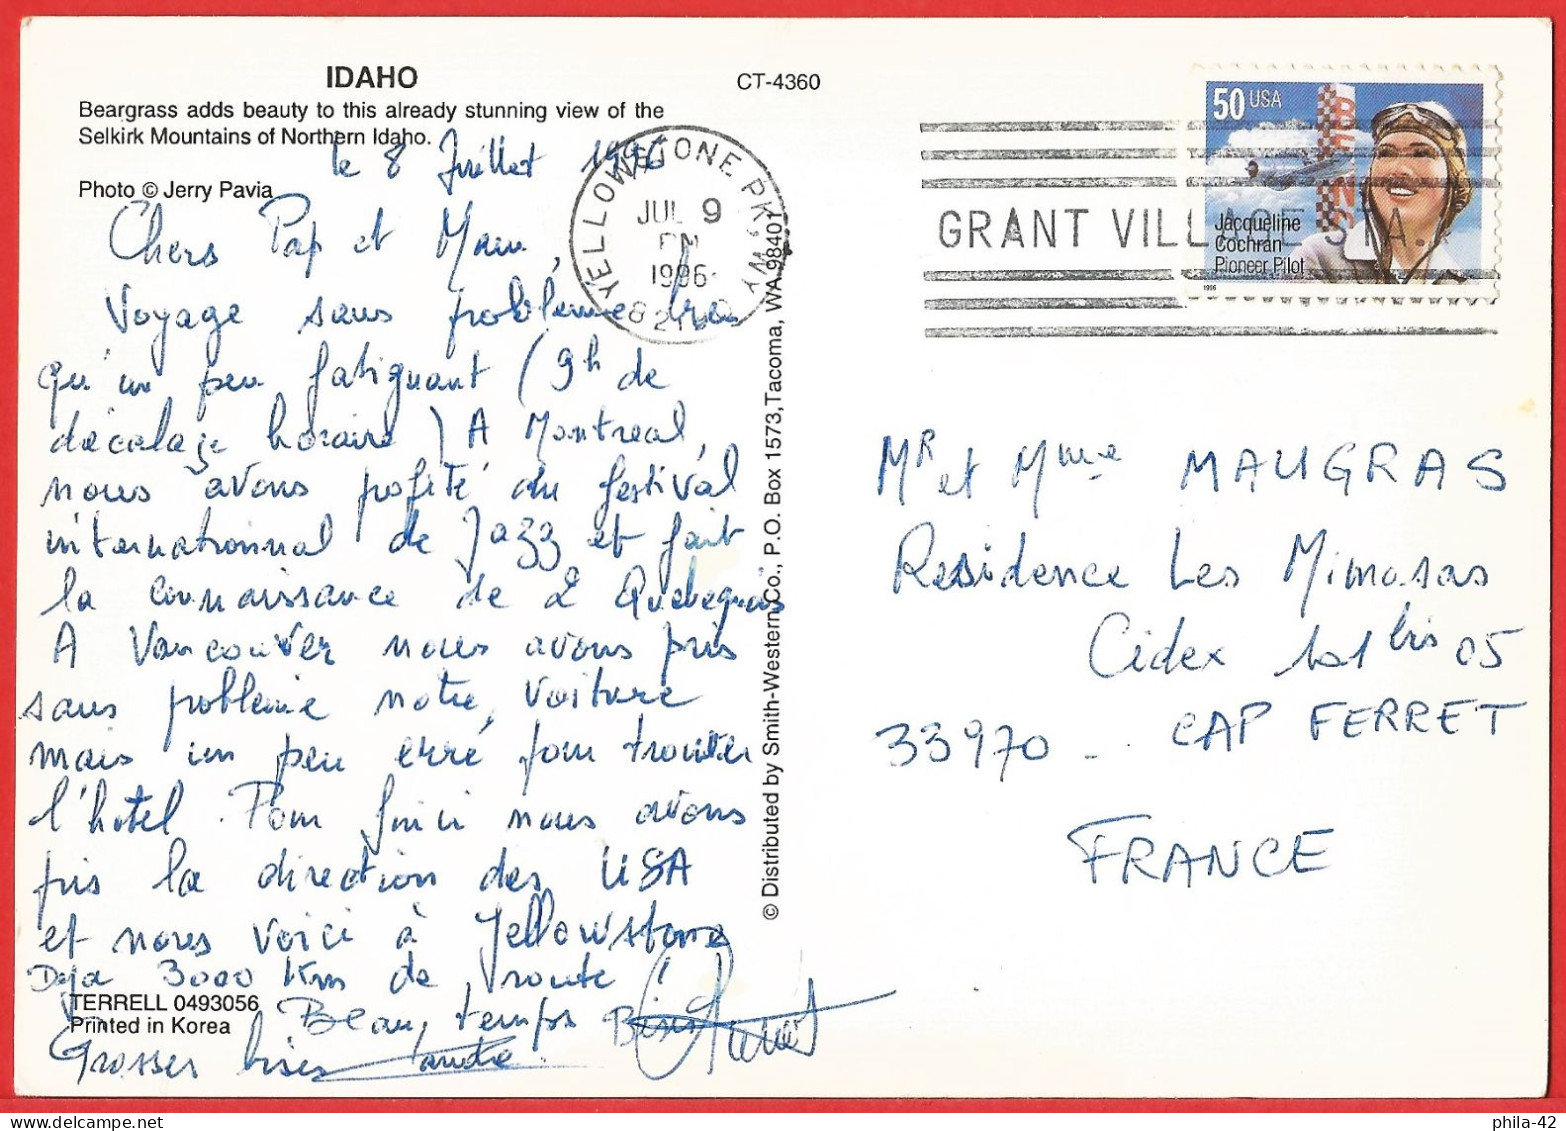 IDAHO
Beargrass adds beauty to this already stunning view of the
Selkirk Mountains of Northern Idaho.
Photo © Jerry Pavia
CT-4360
le 8 Juillet 1996
Chers Pap et Mam,
Voyage sans problème
qu'un peu fatiguant (9h de
décalage horaire) A Montreal,
nous avons profité du festival
internationnal de Jazz et fait
la connaissance de 2 Quebequois
A Vancouver nous avons pris
sans probleme notre voiture
mais un peu erré pour trouver
l'hotel. Pour finir nous avons
pris la direction des USA
et nous voici à Yellowstone
Deja 3000 Km de route !
Beau temps
Grosses bises
TERRELL 0493056
Printed in Korea
© Distributed by Smith-Western Co., P.O. Box 1573, Tacoma, WA 98401
YELLOWSTONE PK., WY
JUL 9
PM
1996
GRANT VILLAGE STA.
50 USA
Jacqueline
Cochran
Pioneer Pilot
1996
Mr et Mme MAUGRAS
Residence Les Mimosas
Cidex 101 bis 05
33970 - CAP FERRET
FRANCE
phila-42